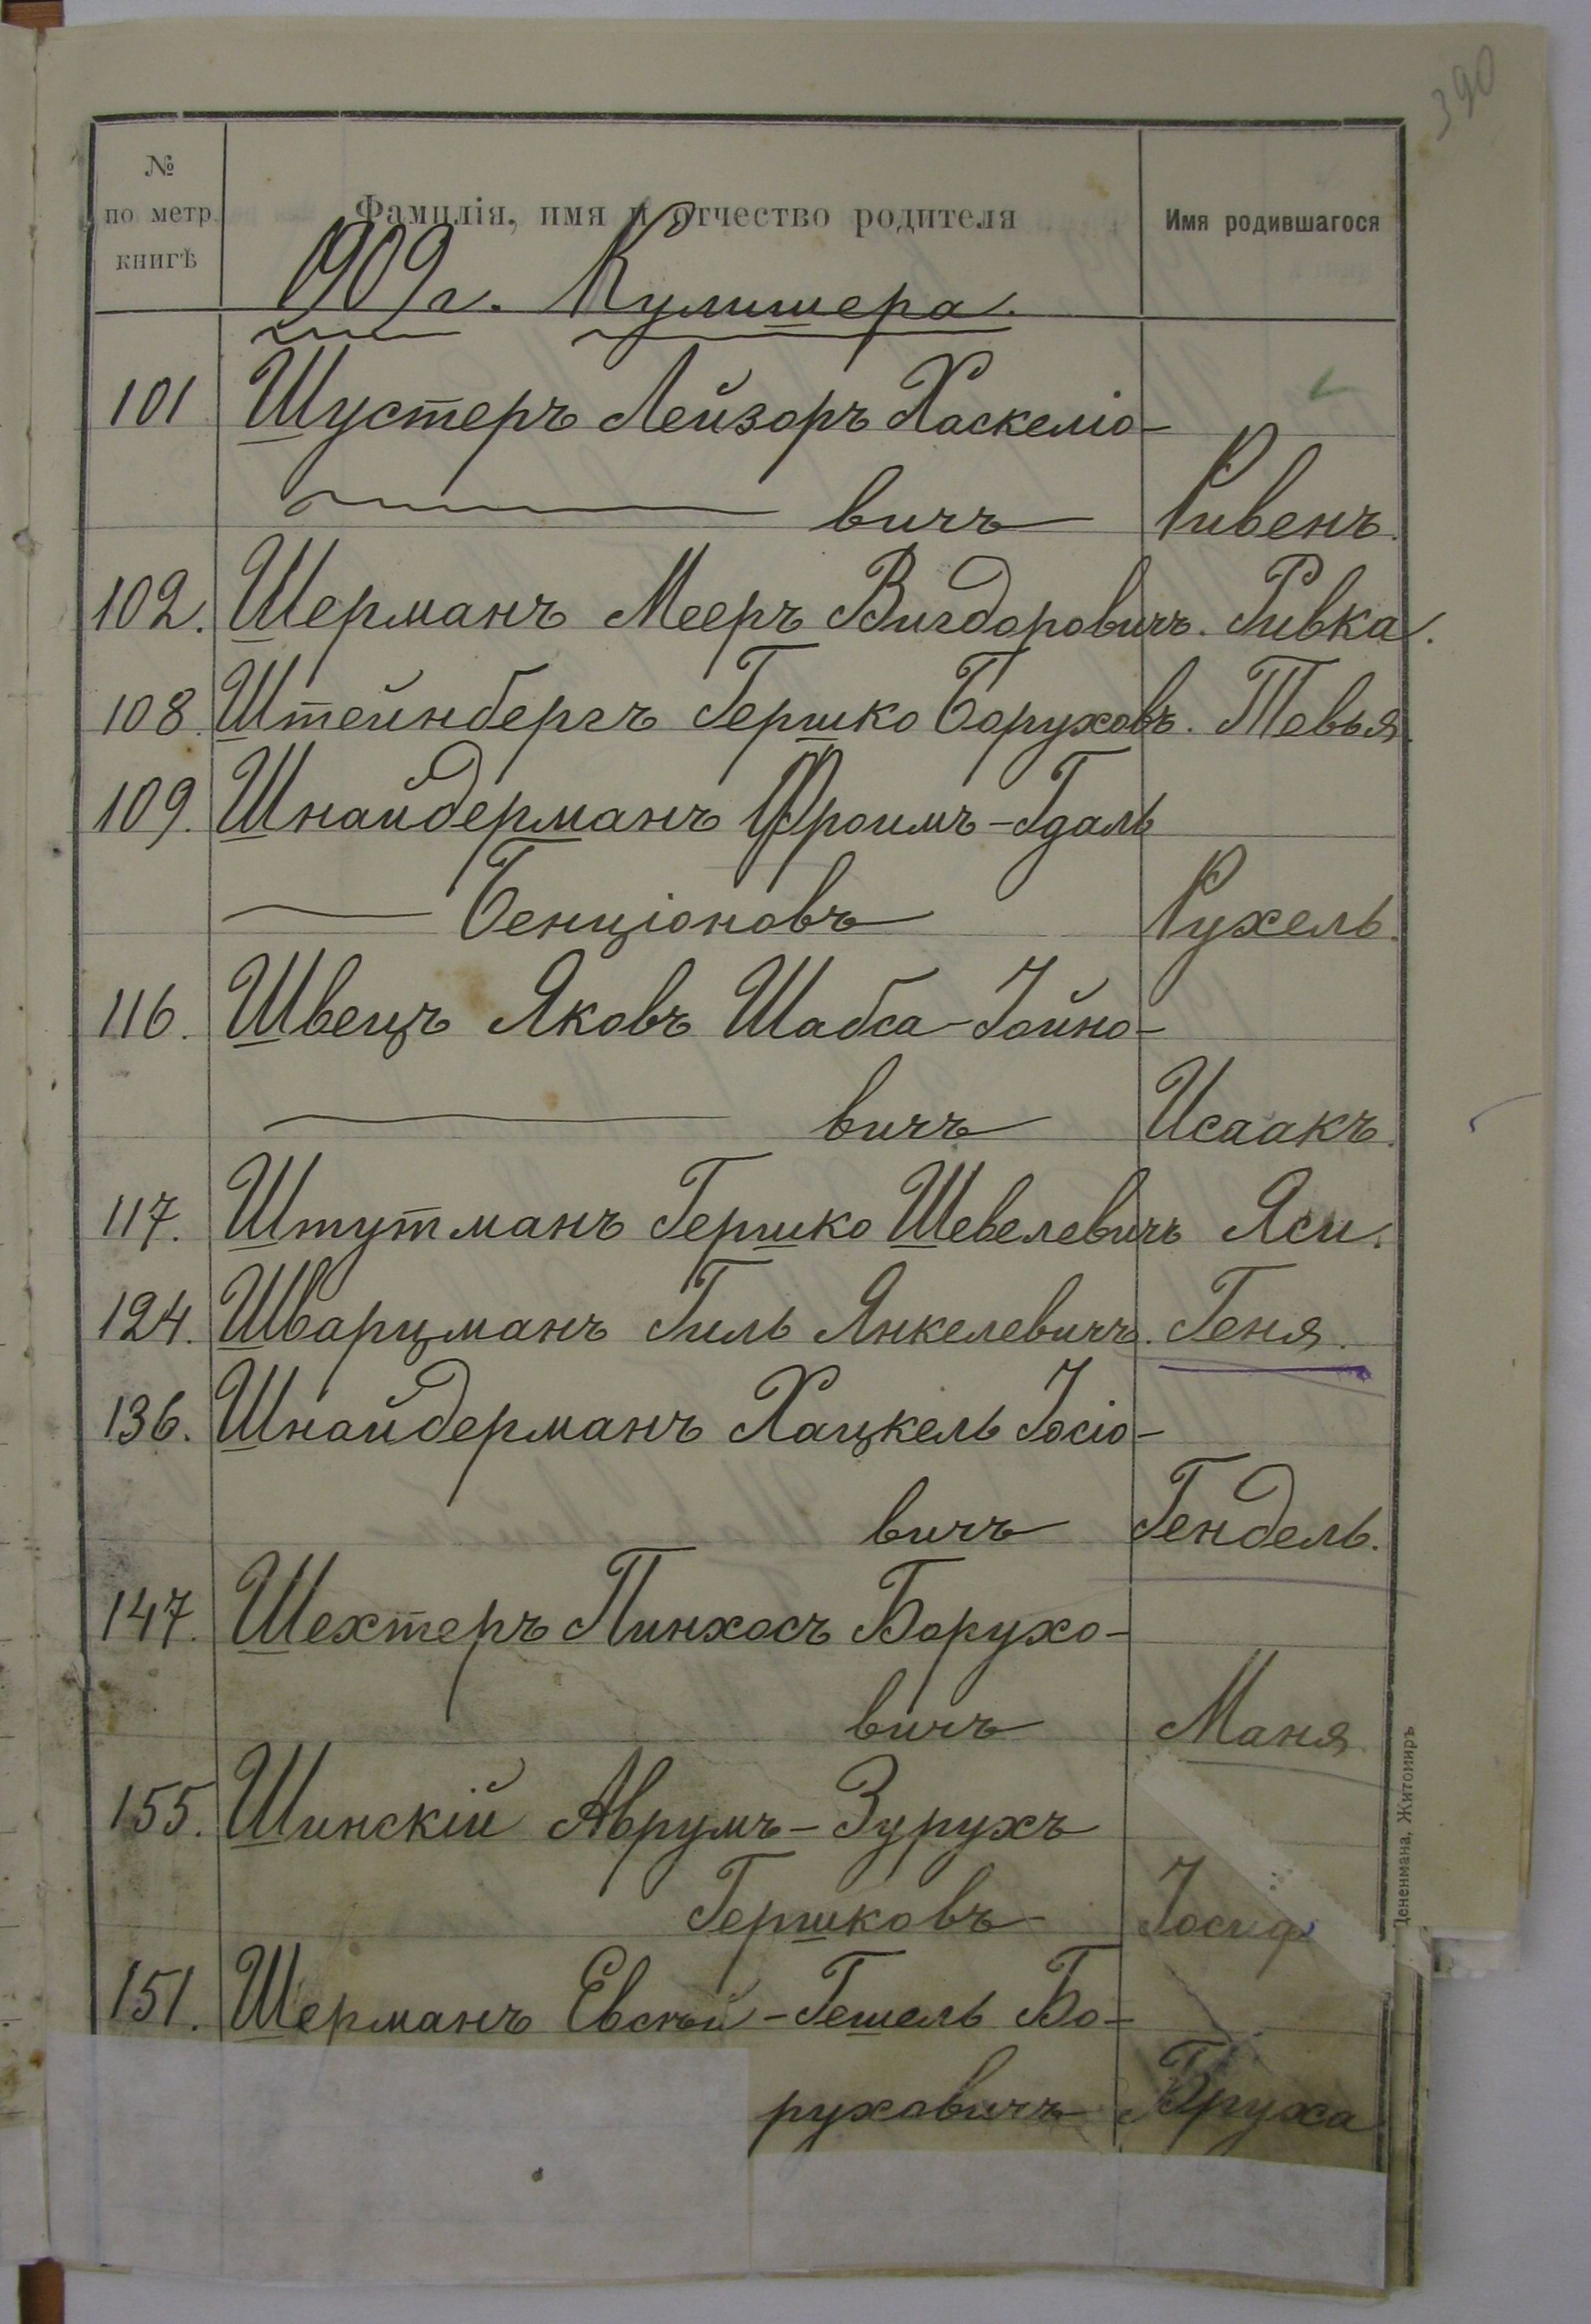 390
№
по метр.
книгѣ
Фамилія, имя и отчество родителя
Имя родившагося
1909 г. Кулишера.
101 Шустеръ Лейзоръ Хаскеліо-
вичъ Ривенъ.
102. Шерманъ Мееръ Вигдоровичъ. Ривка.
108. Штейнбергъ Гершко Боруховъ. Товья.
109. Шнайдерманъ Фроимъ-Гдаль
Бенціоновъ Рухель.
116. Швецъ Яковъ Шабса-Іойно-
вичъ Исаакъ.
117. Штутманъ Гершко Шевелевичъ Яси.
124. Шварцманъ Гиль Янкелевичъ. Геня.
136. Шнайдерманъ Хацкель Іосіо-
вичъ Гендель.
147. Шехтеръ Пинхосъ Борухо-
вичъ Маня
155. Шинскій Аврумъ-Зурухъ
Гершковъ Іосиф
151. Шерманъ Евсѣй-Гешель Бо-
руховичъ Бруха
Дененмана, Житомиръ